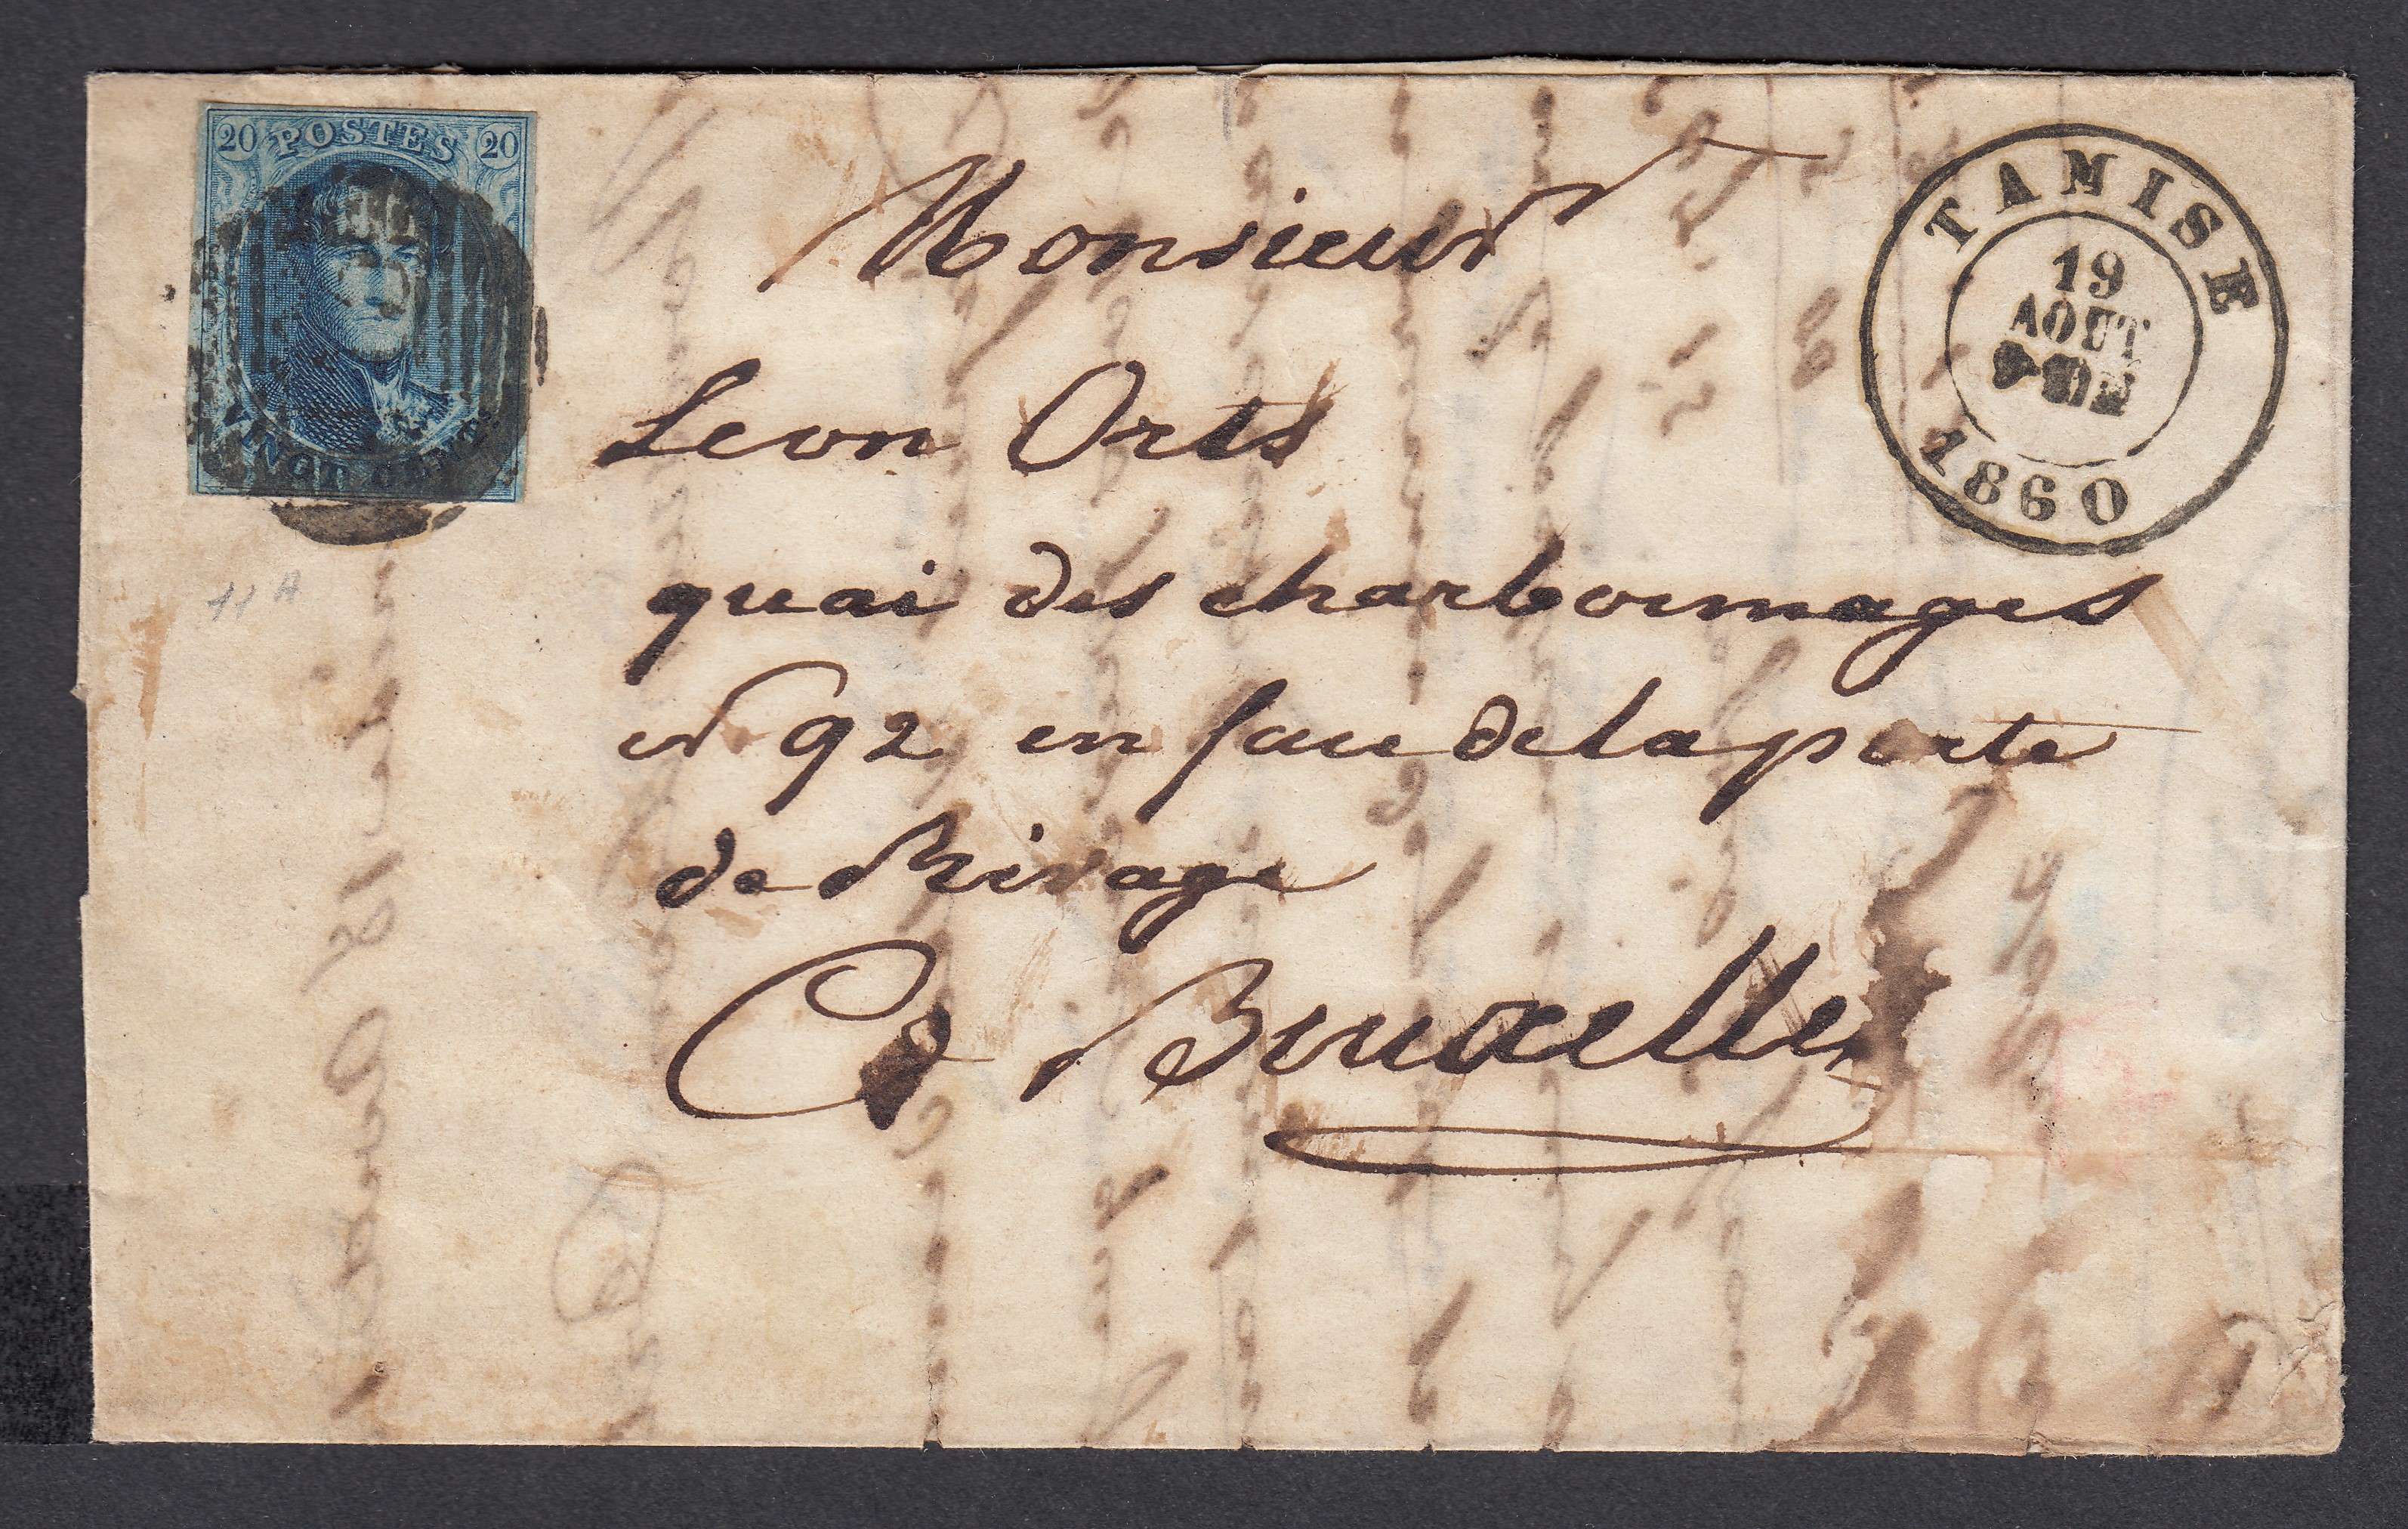 20 POSTES 20
VINGT CENTS
TAMISE
19
AOUT
1860
11A
Monsieur
Leon Orts
quai des charbonnages
nº 92 en face de la porte
de Rivage
à Bruxelles